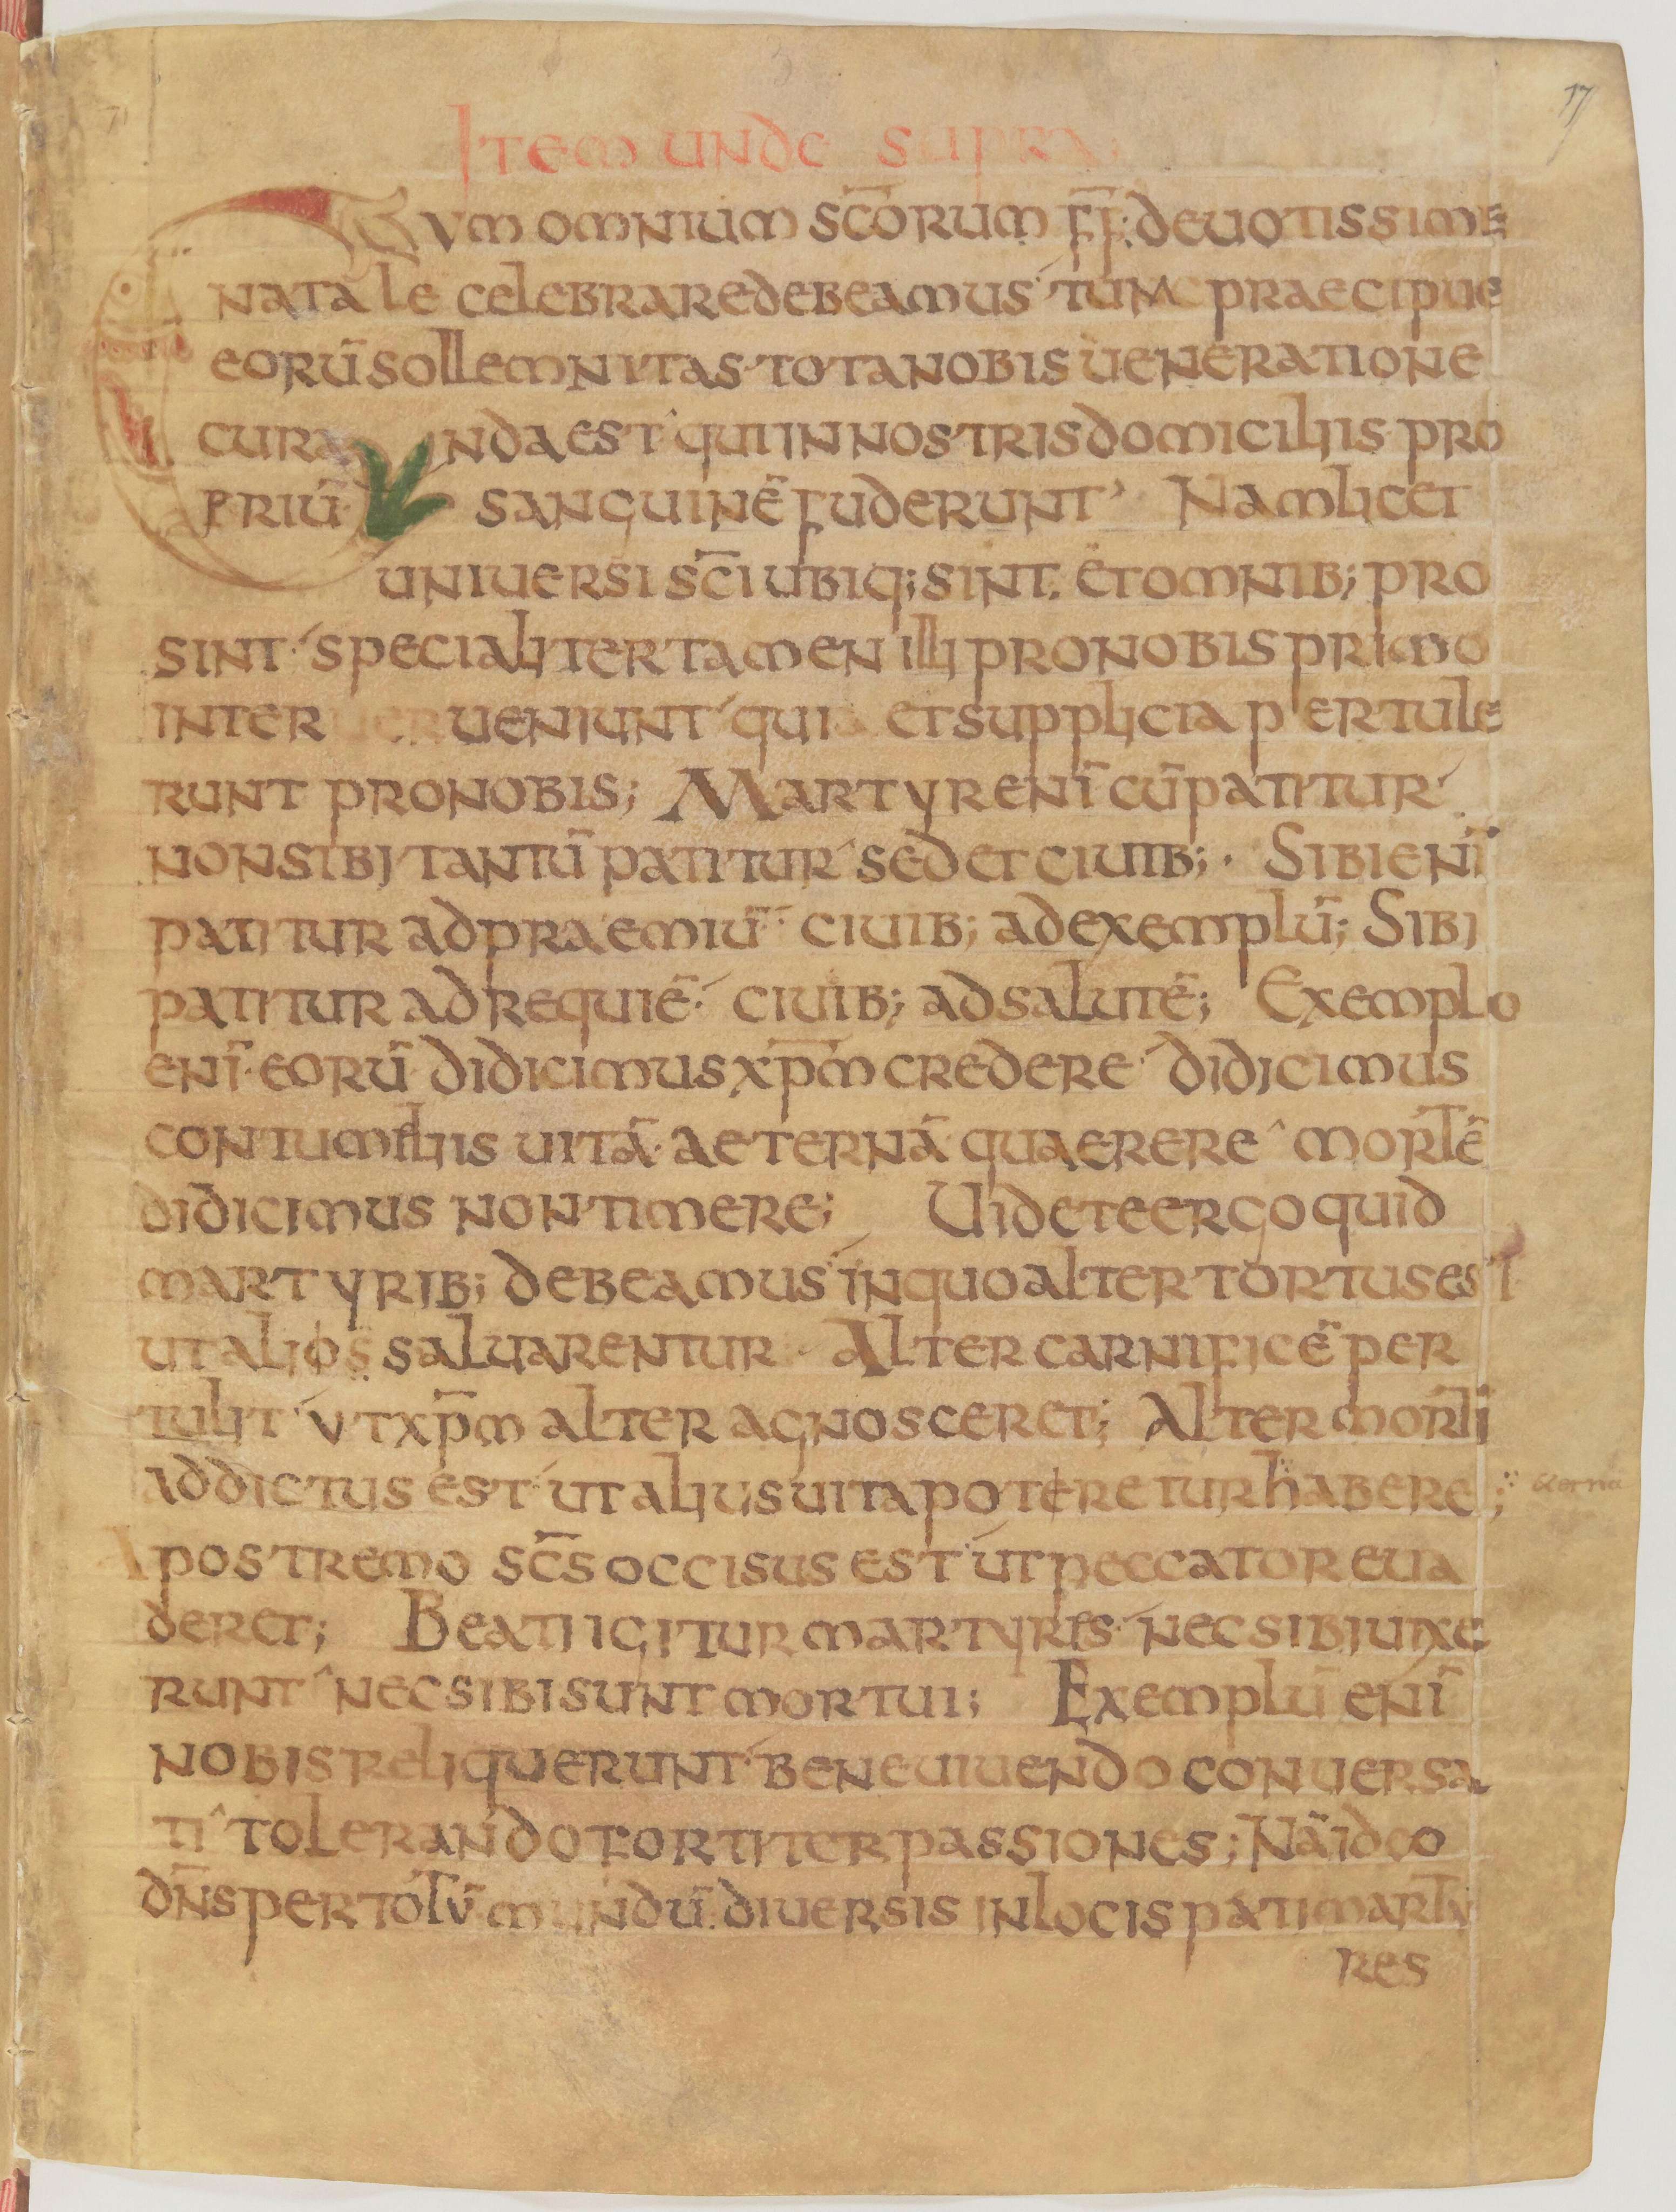 17
Item unde supra;
Cum omnium sc̄orum ff̄: deuotissime
natale celebrare debeamus tunc praecipue
eorū sollemnitas tota nobis ueneratione
curanda est qui in nostris domiciliis pro
priū sanguinē fuderunt Nam licet
uniuersi sc̄i ubiq; sint. et omnib; pro
sint specialiter tamen illi pro nobis primo
interueniunt qui et supplicia pertule
runt pro nobis; Martyr enī cū patitur
non sibi tantū patitur sed et ciuib;. Sibi enī
patitur ad praemiū ciuib; ad exemplū; Sibi
patitur ad requiē. ciuib; ad salutē; Exemplo
enī eorū didicimus xp̄m credere didicimus
contumeliis uitā aeternā quaerere mortē
didicimus non timere; Uidete ergo quid
martyrib; debeamus in quo alter tortus est
ut alios saluarentur. Alter carnificē per
tulit ut xp̄m alter agnosceret; Alter morti
addictus est ut alius uita poteretur habere; &erna
postremo sc̄s occisus est ut peccator eua
deret; Beati igitur martyres nec sibi uixe
runt nec sibi sunt mortui; Exemplū enī
nobis reliquerunt bene uiuendo conuersa
ti tolerando fortiter passiones; Nā ideo
dn̄s per totū mundū diuersis in locis pati marty
res